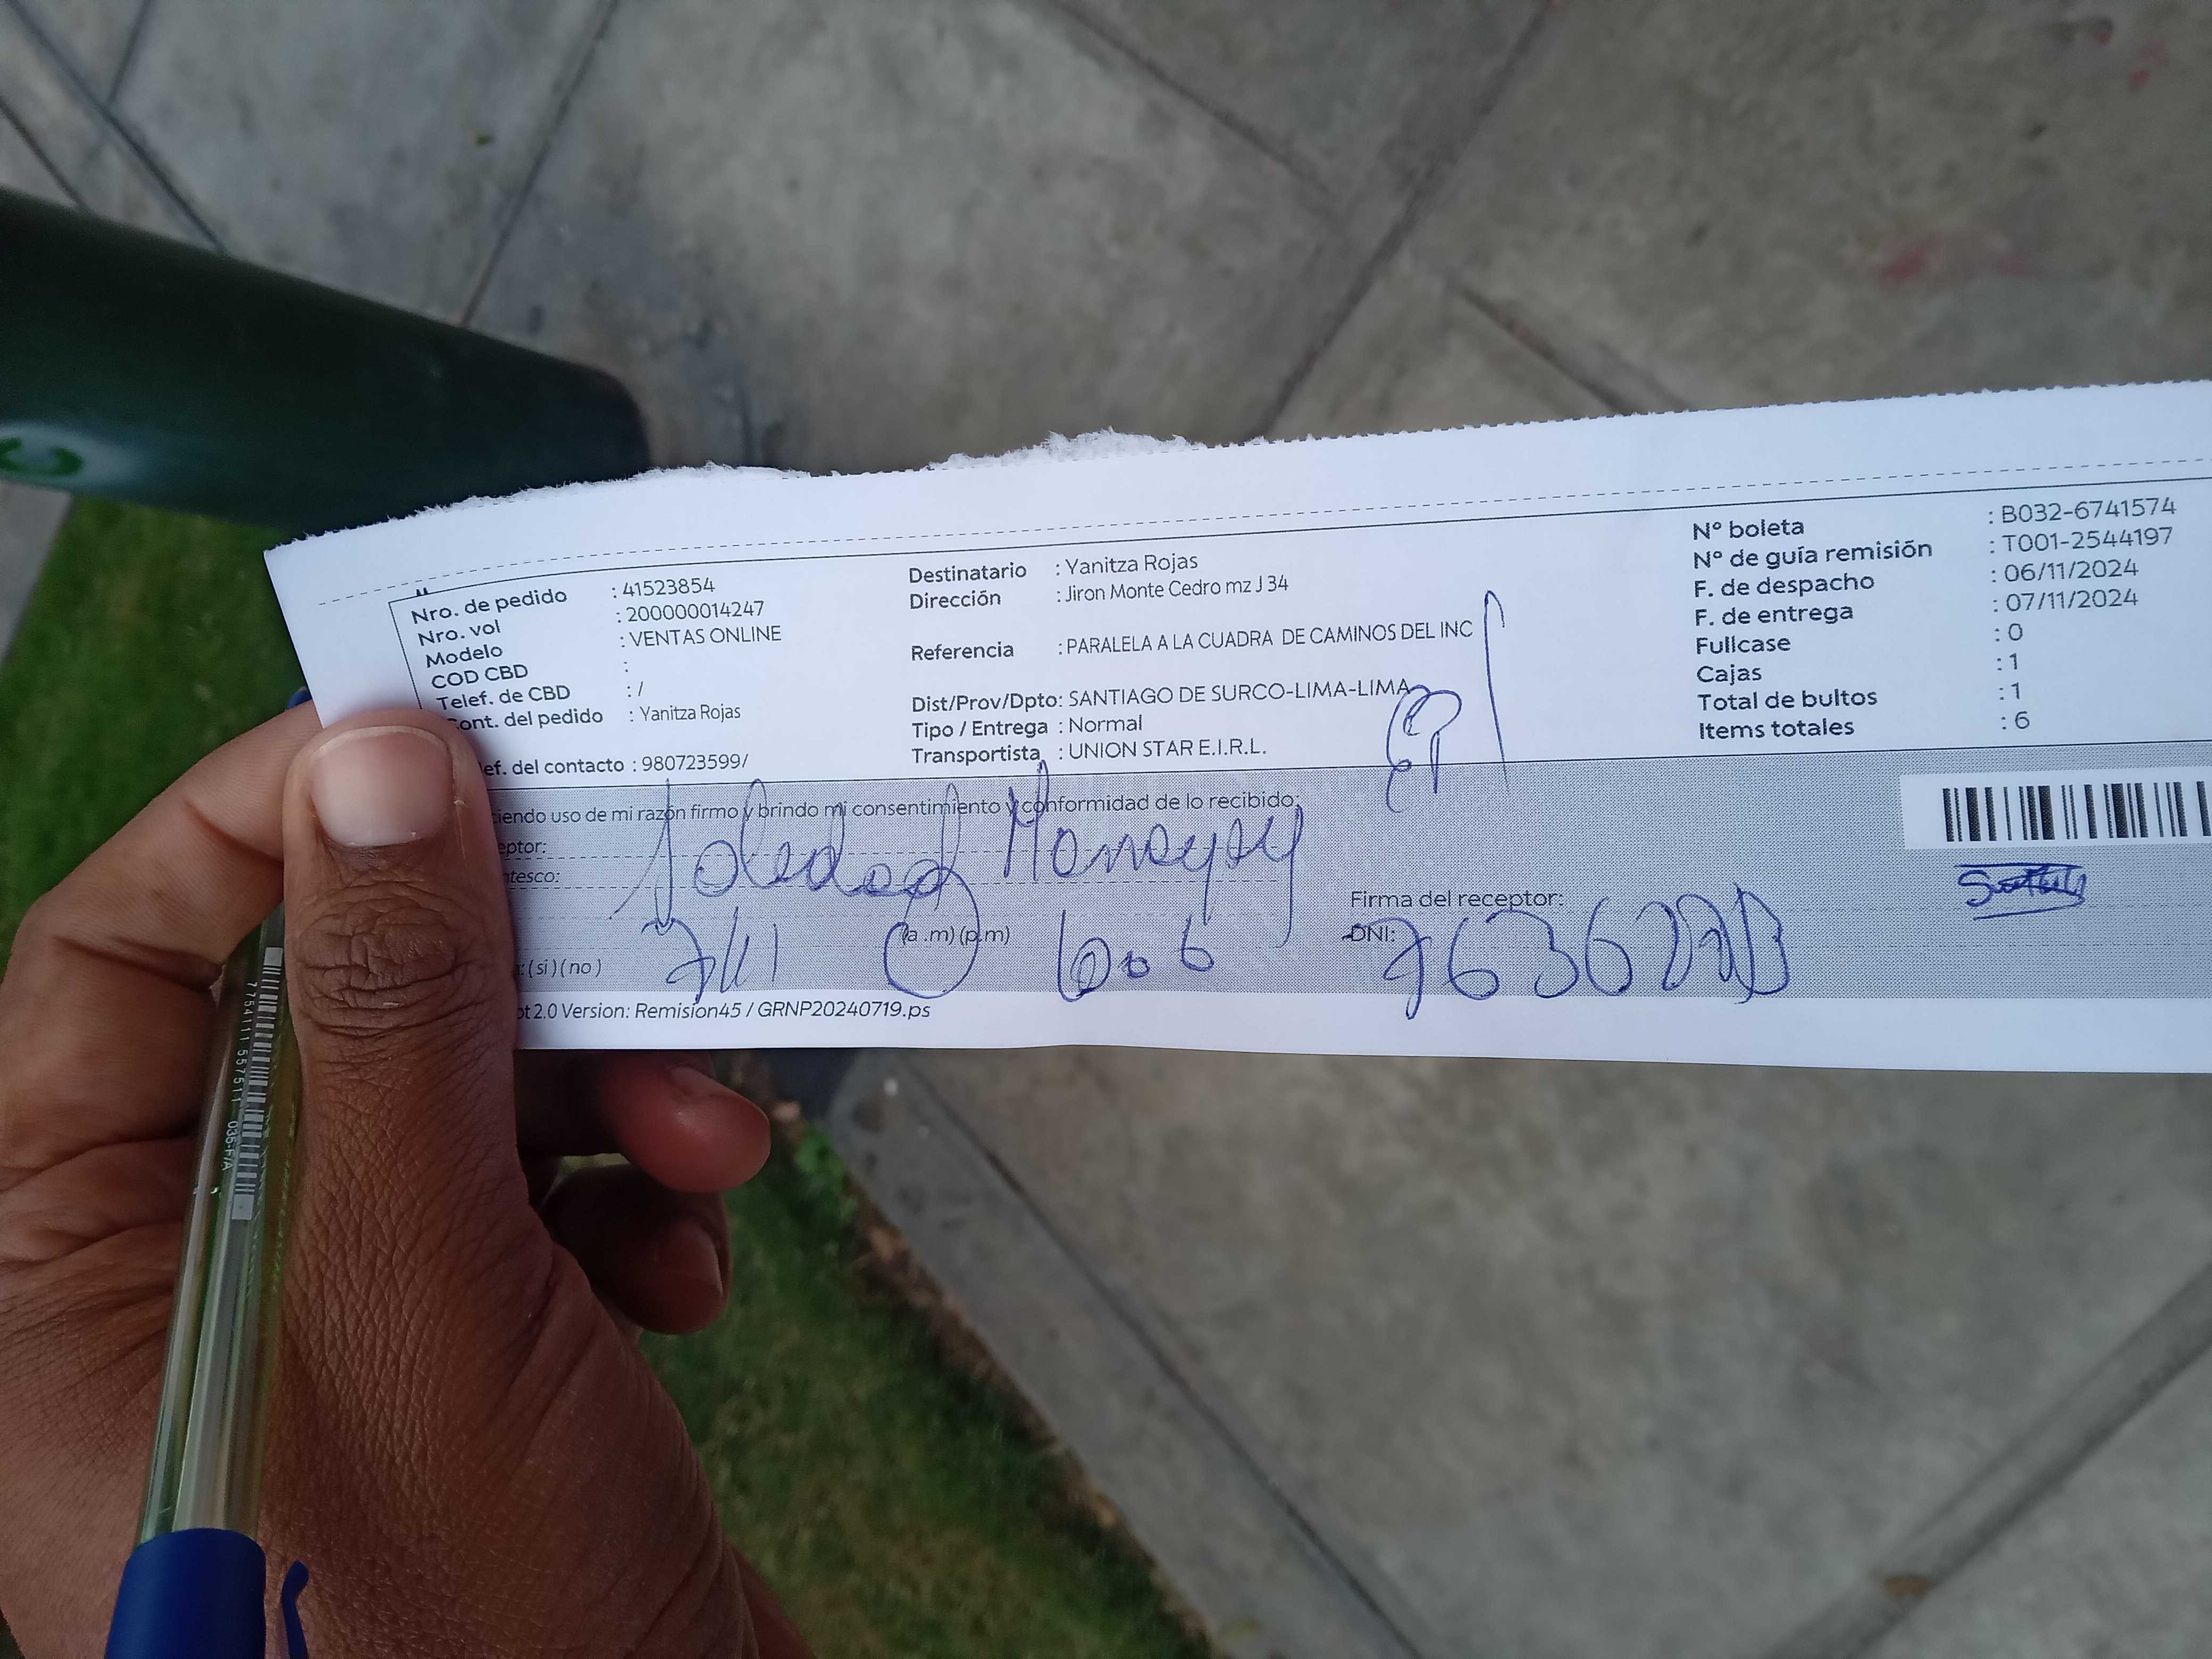 Nro. de pedido : 41523854
Nro. vol : 200000014247
Modelo : VENTAS ONLINE
COD CBD :
Telef. de CBD : /
ont. del pedido : Yanitza Rojas
ef. del contacto : 980723599/
Destinatario : Yanitza Rojas
Dirección : Jiron Monte Cedro mz J 34
Referencia : PARALELA A LA CUADRA DE CAMINOS DEL INC
Dist/Prov/Dpto: SANTIAGO DE SURCO-LIMA-LIMA
Tipo / Entrega : Normal
Transportista : UNION STAR E.I.R.L.
N° boleta : B032-6741574
N° de guía remisión : T001-2544197
F. de despacho : 06/11/2024
F. de entrega : 07/11/2024
Fullcase : 0
Cajas : 1
Total de bultos : 1
Items totales : 6
iendo uso de mi razón firmo y brindo mi consentimiento y conformidad de lo recibido:
eptor: Toledo
ntesco:
Firma del receptor:
(a .m) (p.m)
DNI:
: ( si ) ( no ) 7/11
pt 2.0 Version: Remision45 / GRNP20240719.ps
7 754111 557511 035-F/A